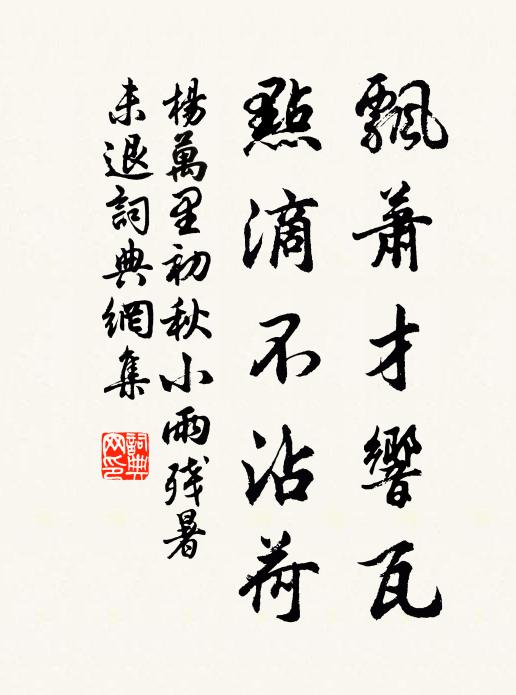 飄蕭才響瓦
點滴不沾荷
楊萬里初秋小雨残暑
未退詞典網集
詞典
网印